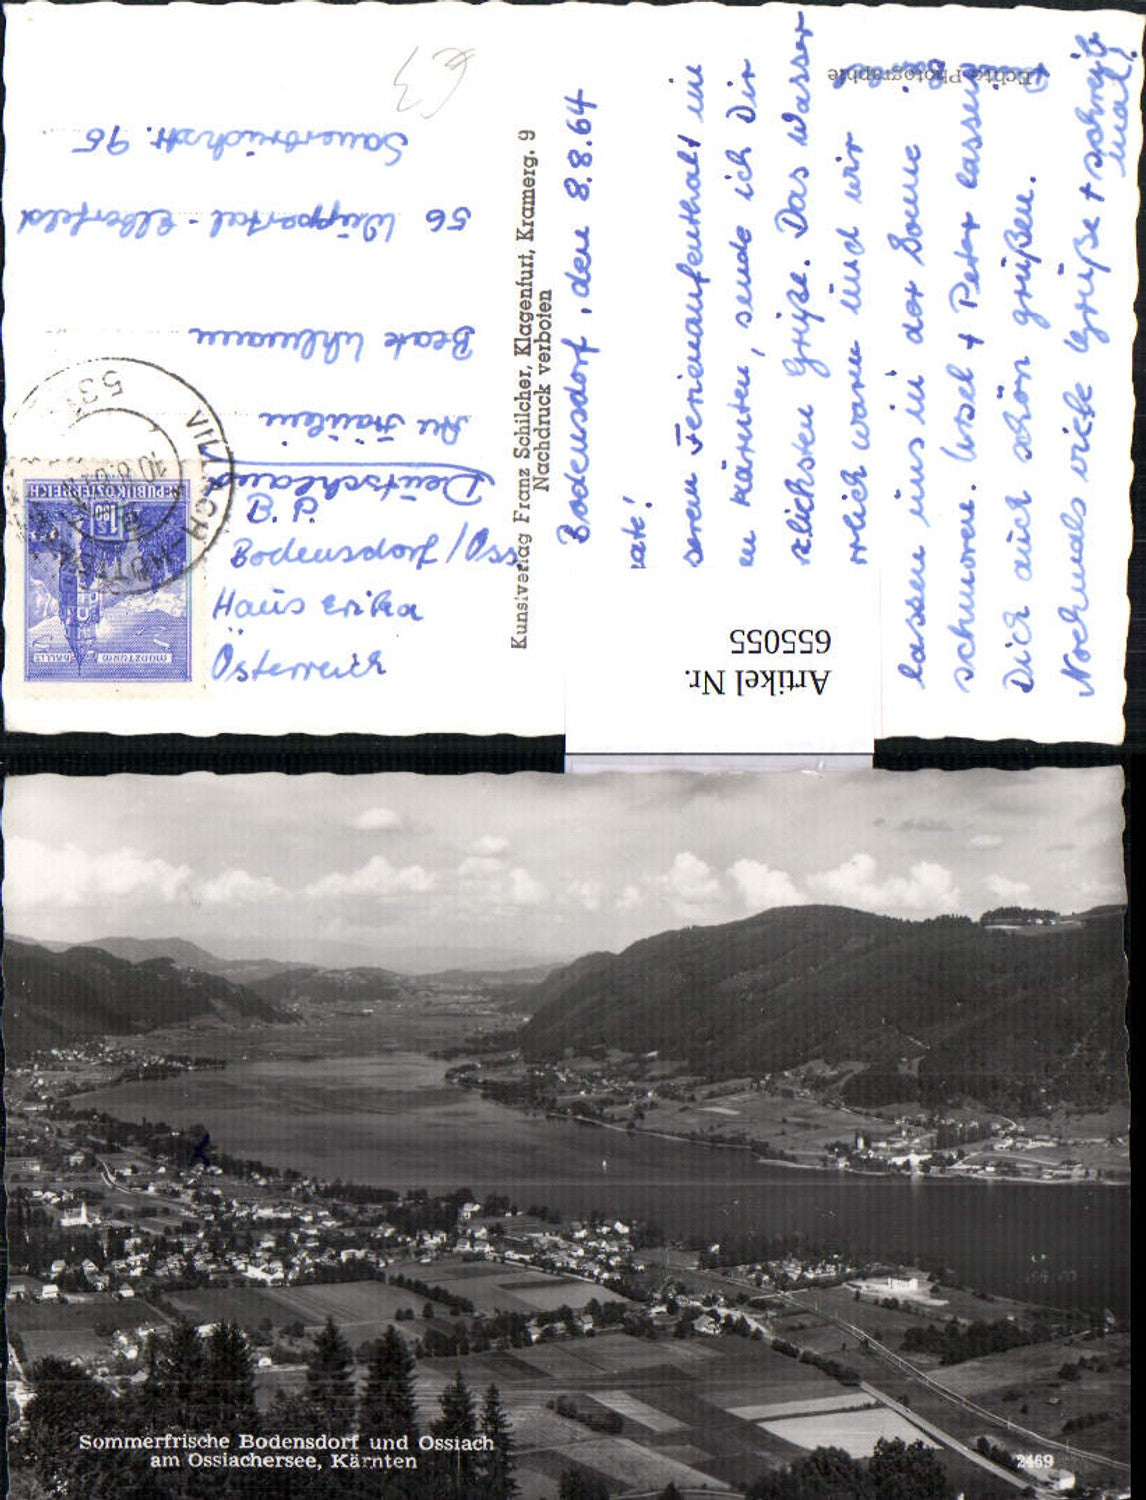 Bodensdorf, den 8.8.64
ate!
seren Ferienaufenthalt in
en Kärnten, sende ich Dir
zlichsten Grüße. Das Wasser
rrlich warm und wir
lassen uns in der Sonne
schmoren. Ursel + Peter lassen
Dich auch schön grüßen.
Nochmals viele Grüße + schreib
mal!
Echte Photographie
Kunstverlag Franz Schilcher, Klagenfurt, Kramerg. 9
Nachdruck verboten
REPUBLIK ÖSTERREICH
1.80
MÜNZTURM HALL
VILLACH
10.8.64
Fräulein
Beate Uhlmann
56 Wuppertal-Elberfeld
Sauerbruchstr. 95
Deutschland
z. Zt.
Bodensdorf/Oss
Haus Erika
Österreich
€3
Artikel Nr.
655055
Sommerfrische Bodensdorf und Ossiach
am Ossiachersee, Kärnten
2469